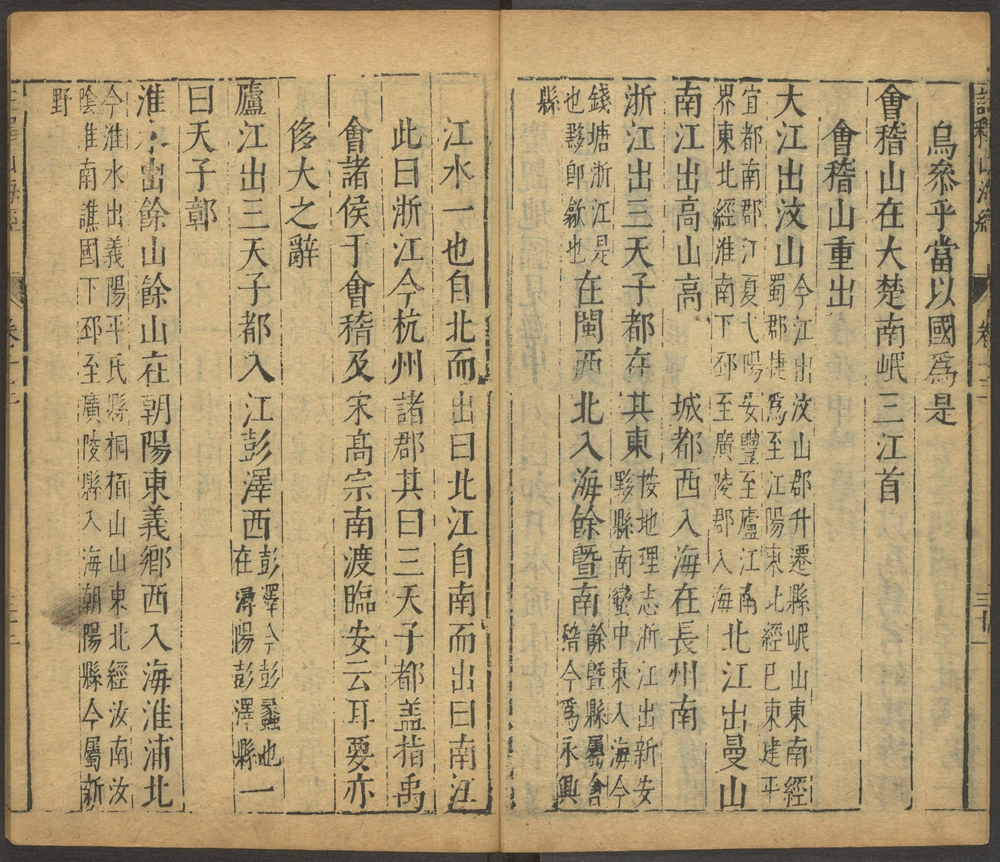 烏叅乎當以國爲是
會稽山在大楚南岷三江首
會稽山重出
大江出汶山今江出汶山郡升遷縣岷山東南經
蜀郡犍爲至江陽東北經巴東建平
宜都南郡江夏弋陽安豐至廬江南
界東北經淮南下邳至廣陵郡入海北江出曼山
南江出高山高城都西入海在長州南
浙江出三天子都在其東按地理志浙江出新安
黟縣南蠻中東入海今
錢塘浙江是
也黟卽歙也在閩西北入海餘暨南餘暨縣屬會
稽今爲永興
縣
江水一也自北而出曰北江自南而出曰南江
此曰浙江今杭州諸郡其曰三天子都盖指禹
會諸侯于會稽及宋髙宗南渡臨安云耳要亦
侈大之辭
廬江出三天子都入江彭澤西彭澤今彭蠡也
在潯陽彭澤縣一
曰天子鄣
淮水出餘山餘山在朝陽東義鄉西入海淮浦北
今淮水出義陽平氏縣桐栢山山東北經汝南汝
陰淮南譙國下邳至廣陵縣入海朝陽縣今屬新
野
卷十三
三十一